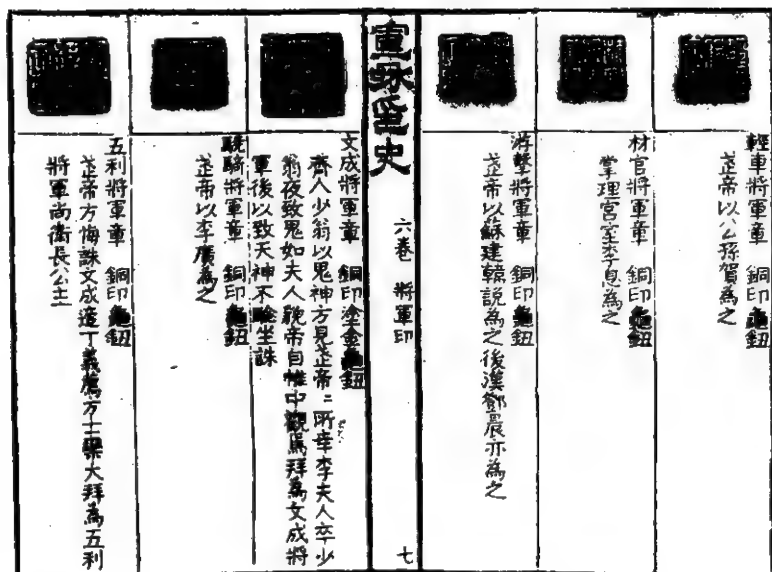 輕車將軍章 銅印龜鈕
武帝以公孫賀為之
材官將軍章 銅印龜鈕
掌理宮室李息為之
游擊將軍章 銅印龜鈕
武帝以蘇建韓說為之後漢鄧晨亦為之
宣和印史
六卷 將軍印
七
文成將軍章 銅印塗金龜鈕
齊人少翁以鬼神方見武帝〻所幸李夫人卒少
翁夜致鬼如夫人貌帝自帷中觀焉拜為文成將
軍後以致天神不驗坐誅
驍騎將軍章 銅印龜鈕
武帝以李廣為之
五利將軍章 銅印龜鈕
武帝方悔誅文成適丁義薦方士欒大拜為五利
將軍尚衛長公主